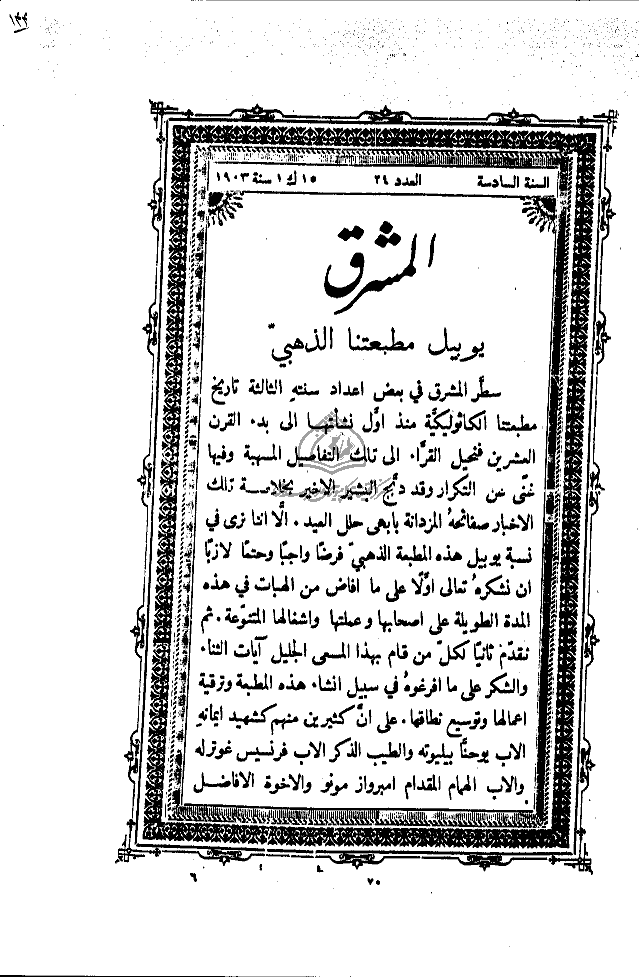 ١٤٤
السنة السادسة العدد ٢٤ ١٥ ك ١ سنة ١٩٠٣
المشرق
يوبيل مطبعتنا الذهبيّ
سطَّر المشرق في بعض اعداد سنتهِ الثالثة تاريخ
مطبعتنا الكاثوليكيَّة منذ اوَّل نشأتها الى بدء القرن
العشرين فنحيل القرَّاء الى تلك التفاصيل المسهبة وفيها
غنًى عن التكرار وقد دبَّج البشير الاخير بخلاصة تلك
الاخبار صفائحهُ المزدانة بابهى حلل العيد . الَّا اننا نرى في
نسبة يوبيل هذه المطبعة الذهبيّ فرضًا واجبًا وحتمًا لازبًا
ان نشكرهُ تعالى اوَّلًا على ما افاض من الهبات في هذه
المدة الطويلة على اصحابها وعملتها واشغالها المتنوّعة . ثم
نقدّم ثانيًا لكلّ من قام بهذا المسعى الجليل آيات الثناء
والشكر على ما افرغوهُ في سبيل انشاء هذه المطبعة وترقية
اعمالها وتوسيع نطاقها . على انَّ كثيرين منهم كشهيد ايمانهِ
الاب يوحنَّا بيليوته والطيب الذكر الاب فرنسيس غوترله
والاب الهمام المقدام امبرواز مونو والاخوة الافاضل
٦ ٧٥